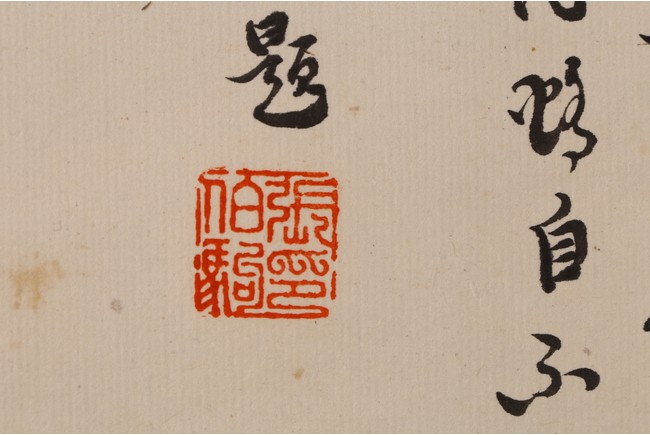 自不
題
張伯駒印